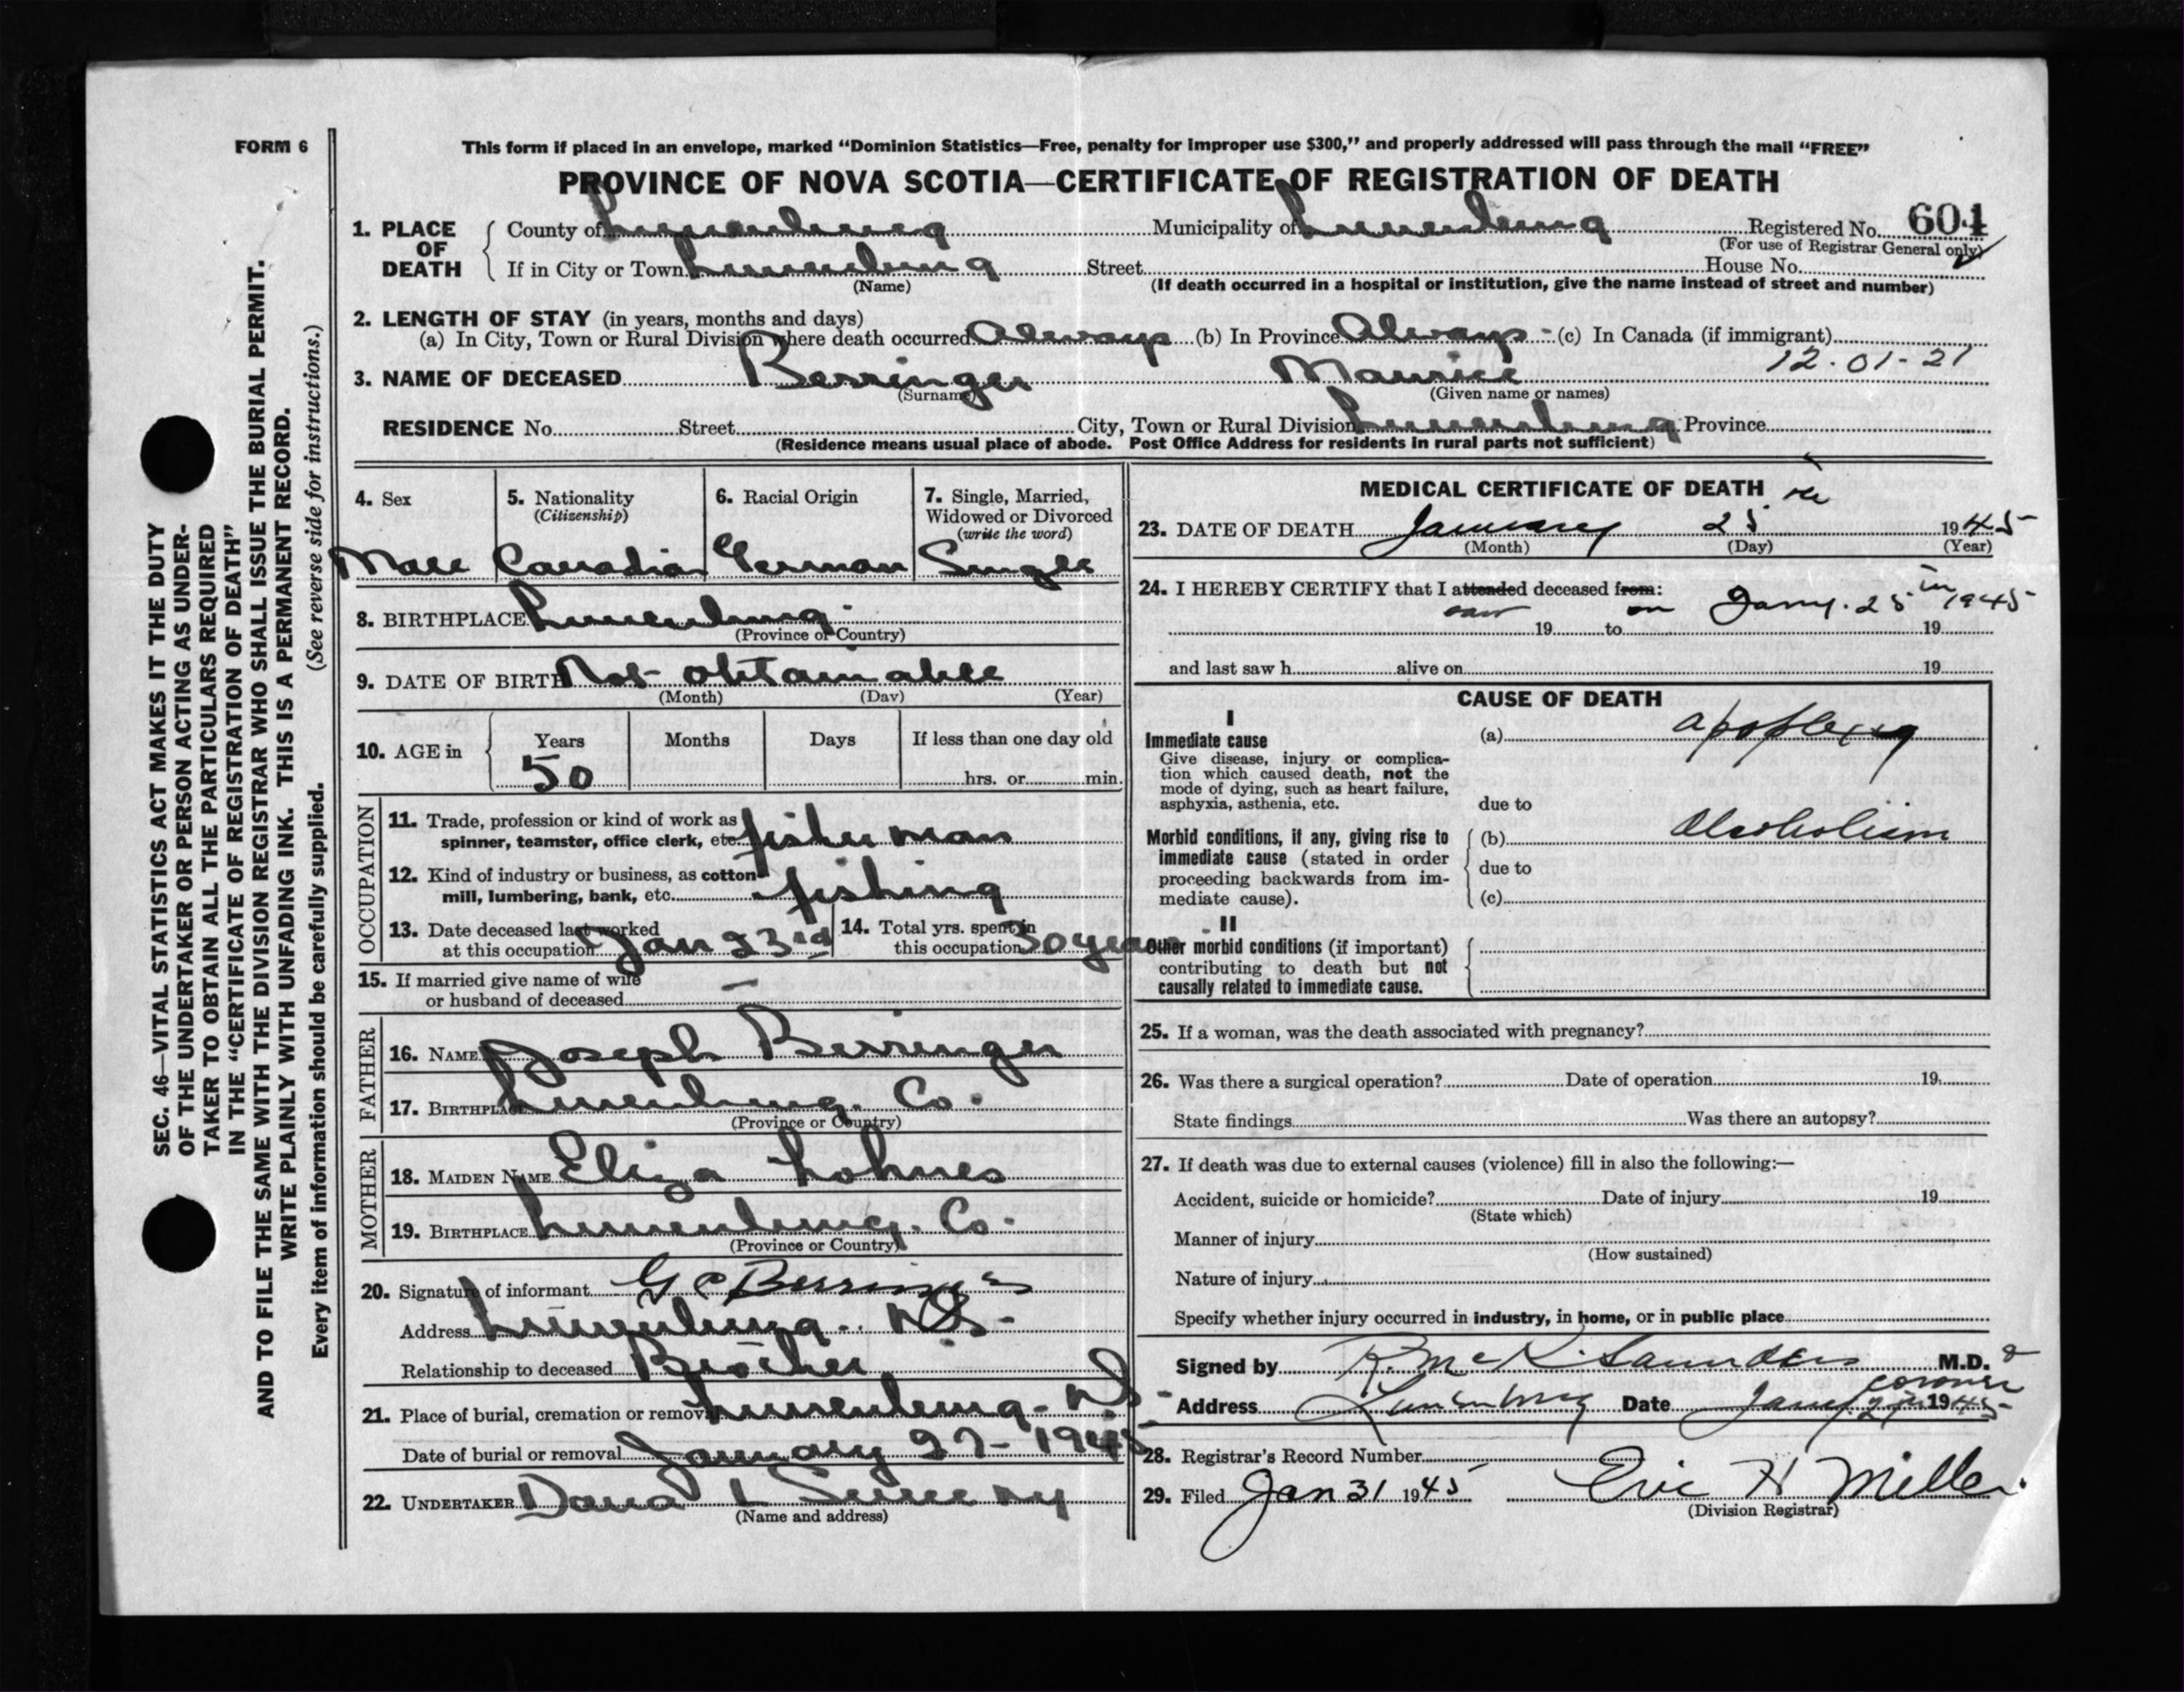 FORM 6
This form if placed in an envelope, marked “Dominion Statistics—Free, penalty for improper use $300,” and properly addressed will pass through the mail “FREE”
PROVINCE OF NOVA SCOTIA—CERTIFICATE OF REGISTRATION OF DEATH
1. PLACE OF DEATH
County of Lunenburg Municipality of Lunenburg Registered No. 601
(For use of Registrar General only)
If in City or Town Lunenburg Street House No.
(Name) (If death occurred in a hospital or institution, give the name instead of street and number)
2. LENGTH OF STAY (in years, months and days)
(a) In City, Town or Rural Division where death occurred Always (b) In Province Always - (c) In Canada (if immigrant)
12.01-21
3. NAME OF DECEASED Berringer Maurice
(Surname) (Given name or names)
RESIDENCE No. Street City, Town or Rural Division Lunenburg Province
(Residence means usual place of abode. Post Office Address for residents in rural parts not sufficient)
4. Sex
Male
5. Nationality
(Citizenship)
Canadian
6. Racial Origin
German
7. Single, Married,
Widowed or Divorced
(write the word)
Single
8. BIRTHPLACE Lunenburg
(Province or Country)
9. DATE OF BIRTH Not obtainable
(Month) (Day) (Year)
10. AGE in
Years Months Days If less than one day old
50 hrs. or min.
OCCUPATION
11. Trade, profession or kind of work as
spinner, teamster, office clerk, etc. fisherman
12. Kind of industry or business, as cotton
mill, lumbering, bank, etc. fishing
13. Date deceased last worked
at this occupation Jan 23rd
14. Total yrs. spent in
this occupation 30 years
15. If married give name of wife
or husband of deceased —
FATHER
16. NAME Joseph Berringer
17. BIRTHPLACE Lunenburg. Co.
(Province or Country)
MOTHER
18. MAIDEN NAME Eliza Lohnes
19. BIRTHPLACE Lunenburg. Co.
(Province or Country)
20. Signature of informant G C Berringer
Address Lunenburg. NS.
Relationship to deceased Brother
21. Place of burial, cremation or removal Lunenburg - NS
Date of burial or removal January 27 - 1945
22. UNDERTAKER L
(Name and address)
MEDICAL CERTIFICATE OF DEATH
23. DATE OF DEATH January 25 th 1945
(Month) (Day) (Year)
24. I HEREBY CERTIFY that I attended deceased from:
saw on Jany. 25 1945
19 to 19
and last saw h alive on 19
CAUSE OF DEATH
I
Immediate cause
Give disease, injury or complica-
tion which caused death, not the
mode of dying, such as heart failure,
asphyxia, asthenia, etc.
(a) apoplexy
due to
Morbid conditions, if any, giving rise to
immediate cause (stated in order
proceeding backwards from im-
mediate cause).
(b) Alcoholism
due to
(c)
II
Other morbid conditions (if important)
contributing to death but not
causally related to immediate cause.
25. If a woman, was the death associated with pregnancy?
26. Was there a surgical operation? Date of operation 19
State findings Was there an autopsy?
27. If death was due to external causes (violence) fill in also the following:—
Accident, suicide or homicide? Date of injury 19
(State which)
Manner of injury
(How sustained)
Nature of injury
Specify whether injury occurred in industry, in home, or in public place
Signed by R. McK. Saunders M.D. &
coroner
Address Lunenburg Date Jany. 1945
28. Registrar's Record Number
29. Filed Jan 31 1945 Eric H Miller.
(Division Registrar)
SEC. 46—VITAL STATISTICS ACT MAKES IT THE DUTY
OF THE UNDERTAKER OR PERSON ACTING AS UNDER-
TAKER TO OBTAIN ALL THE PARTICULARS REQUIRED
IN THE “CERTIFICATE OF REGISTRATION OF DEATH”
AND TO FILE THE SAME WITH THE DIVISION REGISTRAR WHO SHALL ISSUE THE BURIAL PERMIT.
WRITE PLAINLY WITH UNFADING INK. THIS IS A PERMANENT RECORD.
Every item of information should be carefully supplied. (See reverse side for instructions.)